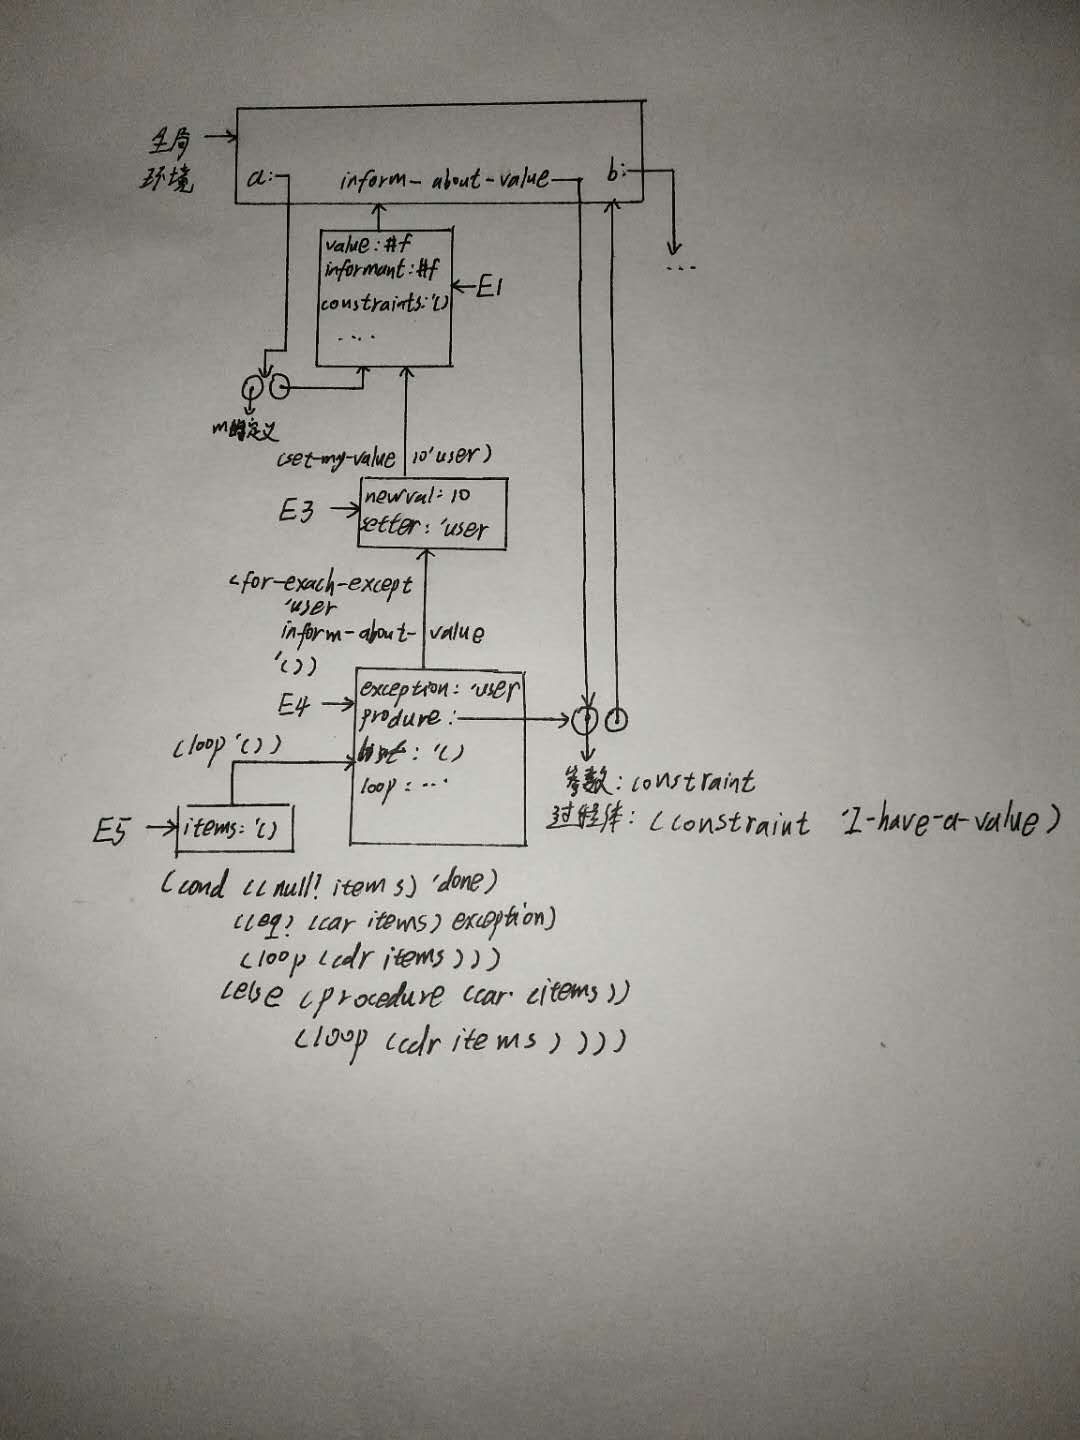 全局
环境
a:
inform-about-value
b:
...
value:#f
informant:#f
constraints:'()
....
E1
m的定义
(set-my-value 10 'user)
E3
newval:10
setter:'user
(for-exach-except
'user
inform-about-value
'())
E4
exception:'user
produre:
list:'()
loop:...
(loop '())
E5
items:'()
参数:constraint
过程体:(constraint 'I-have-a-value)
(cond ((null? items) 'done)
((eq? (car items) exception)
(loop (cdr items)))
(else (procedure (car (items))
(loop (cdr items))))